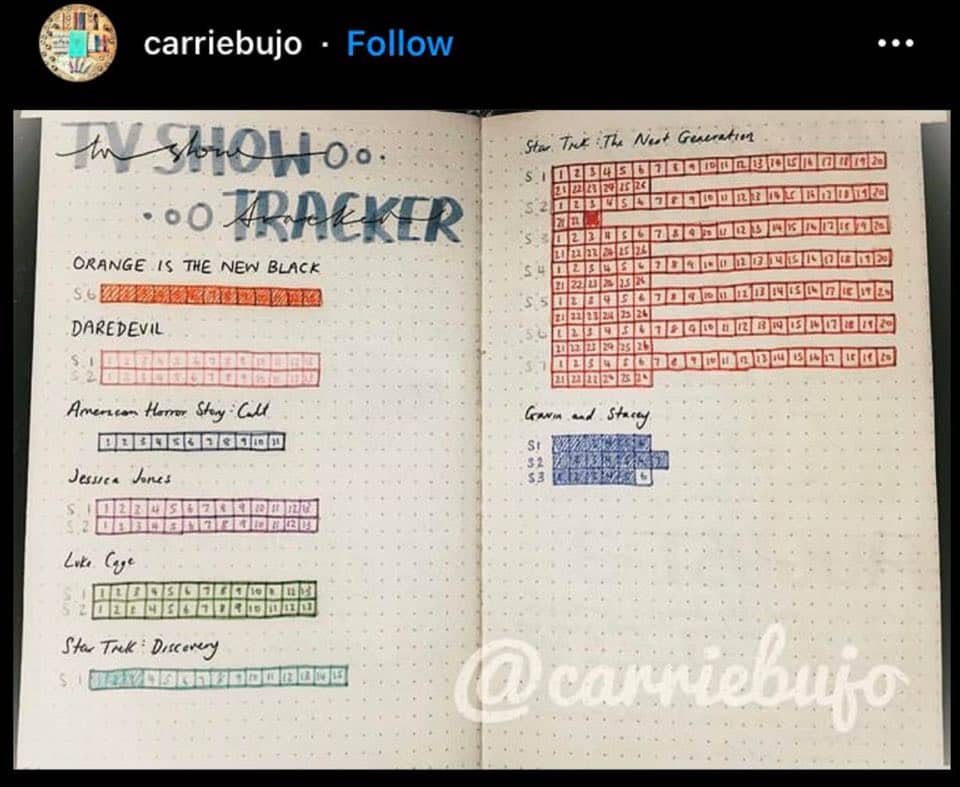 carriebujo · Follow
TV SHOW
tv show
TRACKER
tracker
ORANGE IS THE NEW BLACK
S.6
DAREDEVIL
S.1 1 2 3 4 5 6 7 8 9 10 11 12 13
S.2 1 2 3 4 5 6 7 8 9 10 11 12 13
American Horror Story: Cult
1 2 3 4 5 6 7 8 9 10 11
Jessica Jones
S.1 1 2 3 4 5 6 7 8 9 10 11 12 13
S.2 1 2 3 4 5 6 7 8 9 10 11 12 13
Luke Cage
S 1 1 2 3 4 5 6 7 8 9 10 11 12 13
S 2 1 2 3 4 5 6 7 8 9 10 11 12 13
Star Trek: Discovery
S.1 4 5 6 7 8 9 10 11 12 13 14 15
Star Trek: The Next Generation
S 1 1 2 3 4 5 6 7 8 9 10 11 12 13 14 15 16 17 18 19 20
21 22 23 24 25 26
S 2 1 2 3 4 5 6 7 8 9 10 11 12 13 14 15 16 17 18 19 20
21 22
S 3 1 2 3 4 5 6 7 8 9 10 11 12 13 14 15 16 17 18 19 20
21 22 23 24 25 26
S 4 1 2 3 4 5 6 7 8 9 10 11 12 13 14 15 16 17 18 19 20
21 22 23 24 25 26
S.5 1 2 3 4 5 6 7 8 9 10 11 12 13 14 15 16 17 18 19 20
21 22 23 24 25 26
S 6 1 2 3 4 5 6 7 8 9 10 11 12 13 14 15 16 17 18 19 20
21 22 23 24 25 26
S.7 1 2 3 4 5 6 7 8 9 10 11 12 13 14 15 16 17 18 19 20
21 22 23 24 25 26
Gavin and Stacey
S1 4 5 6
S2 2 3 4 5 6 7
S3 1 2 3 4 5 6
@carriebujo